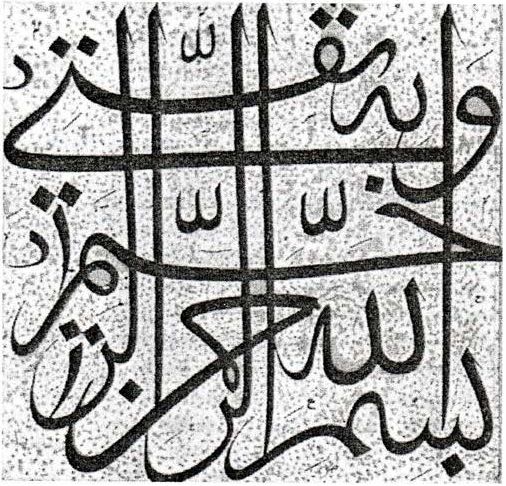 بسم الله الرحمن
الرحيم
وبه ثقتي